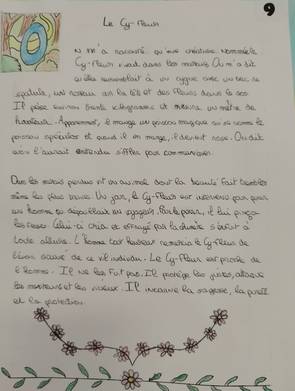 9
Le Cy-Fleur
N M'A raconté qu'une créature nommée le
Cy-Fleur vivait dans les marais. On m'a dit
qu'elle ressemblait à un cygne avec un bec de
spatule, un roseau sur la tête et des fleurs dans le dos.
Il pèse environ trente kilogrammes et mesure un mètre de
hauteur. Apparemment, il mange un poisson magique qui se nomme le
poisson et quand il en mange, il devient rose. On dit
qu'on l'aurait entendu siffler pour communiquer.
Dans les marais perdus vit un animal dont la beauté fait trembler
même les plus braves. Un jour, le Cy-Fleur est intervenu parce que
un homme dépouillait un voyageur. Pour le punir, il lui pinça
les fesses. Celui-ci cria et effrayé par la chimère s'enfuit à
toute allure. L'homme tout heureux remercia le Cy-Fleur de
l'avoir sauvé de ce vil individu. Le Cy-Fleur est proche de
l'homme. Il ne les fuit pas. Il protège les justes, attaque
les menteurs et les voleurs. Il incarne la sagesse, la pureté
et la protection.